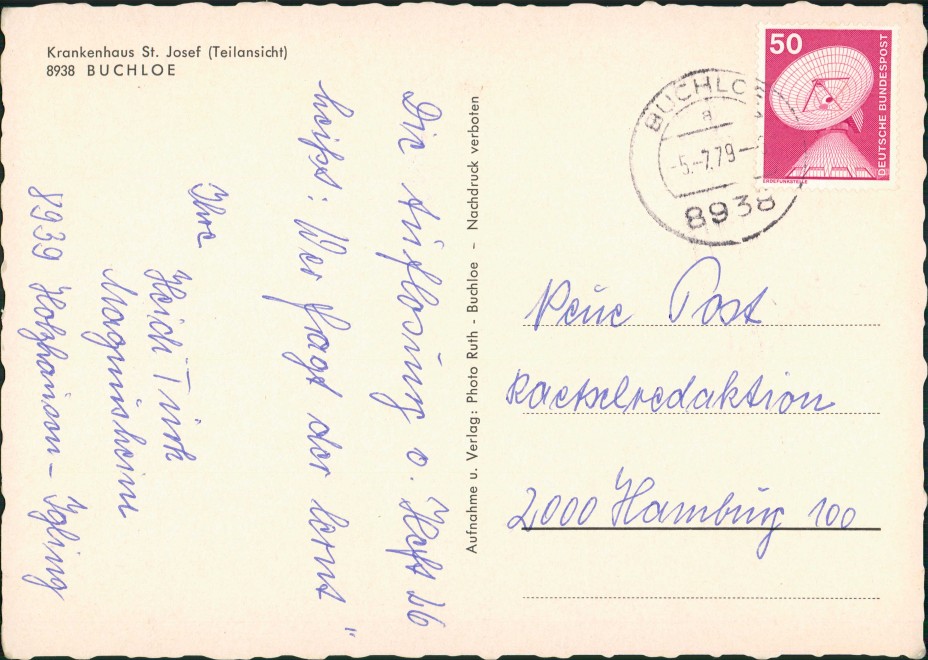 Krankenhaus St. Josef (Teilansicht)
8938 BUCHLOE
Die Auflösung v. Heft 26
heißt: Wer fragt der lernt"
Ihre
Heidi Tink
Magnusheim
8939 Holzhausen - Igling
Aufnahme u. Verlag: Photo Ruth - Buchloe - Nachdruck verboten
BUCHLOE
a
-5.-7.79-
8938
50
DEUTSCHE BUNDESPOST
ERDEFUNKSTELLE
Neue Post
Raetselredaktion
2000 Hamburg 100